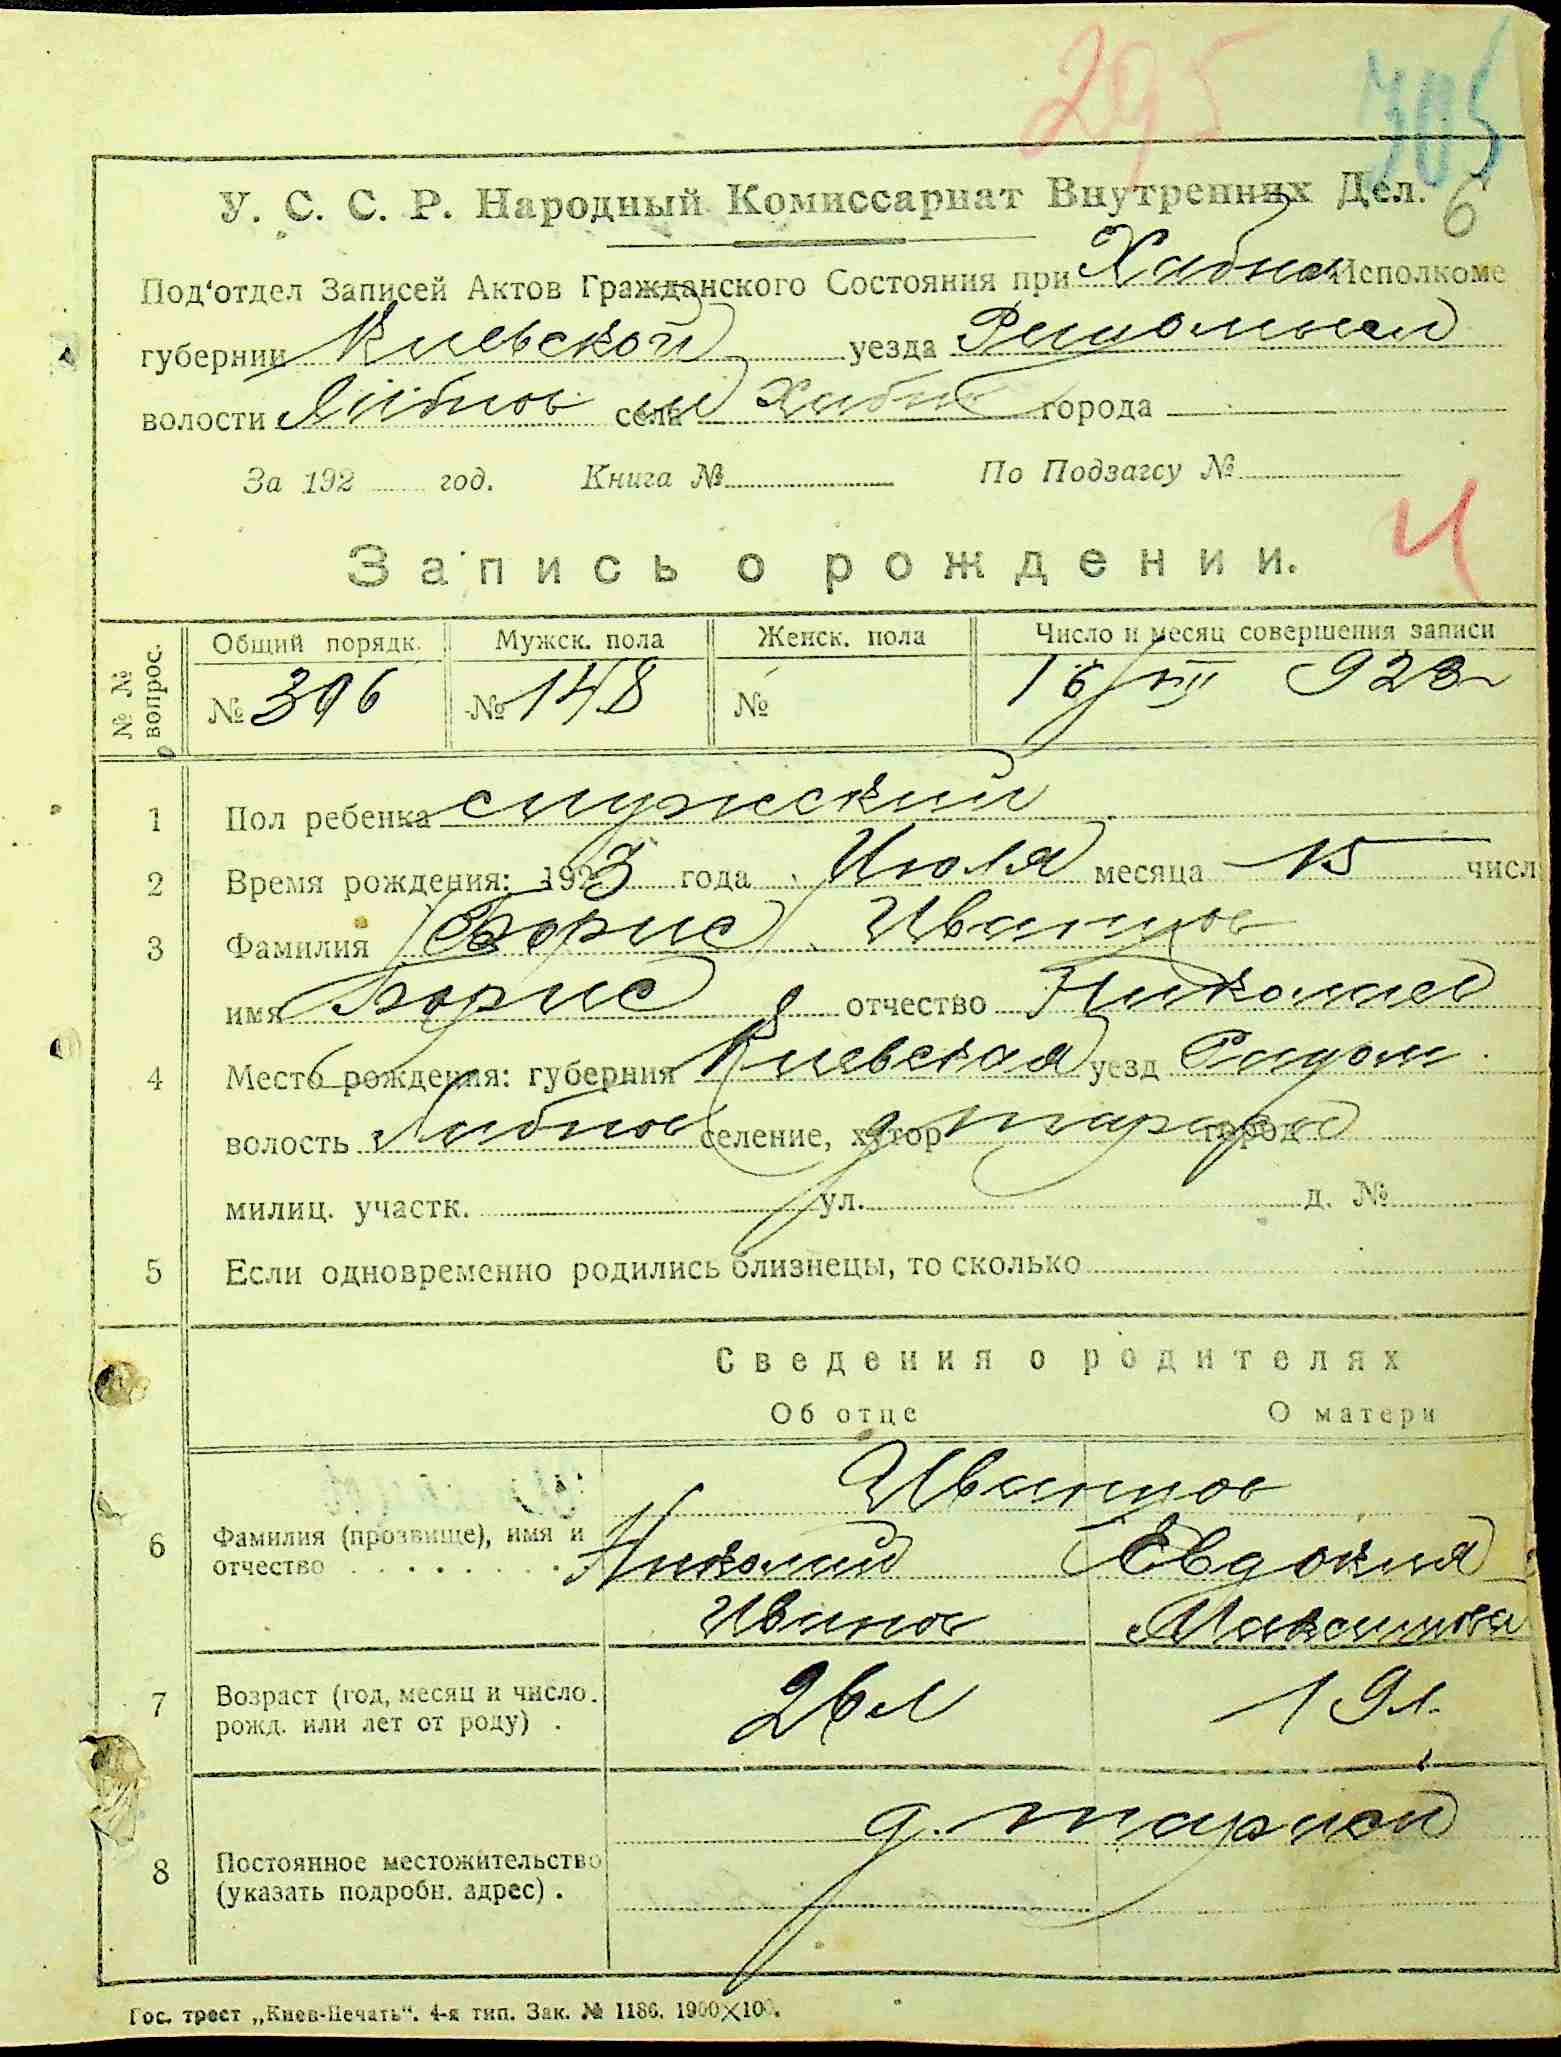 295 705
У. С. С. Р. Народный Комиссариат Внутренних Дел. 6
Под'отдел Записей Актов Гражданского Состояния при Хабнов Исполкоме
губернии Киевской уезда
волости села Хабно города
За 192 год. Книга № По Подзагсу №
Запись о рождении.
№ № вопрос. Общий порядк. Мужск. пола Женск. пола Число и месяц совершения записи
№ 396 № 148 № 16/VIII 923
1 Пол ребенка мужский
2 Время рождения: 1923 года Июля месяца 15 числ
3 Фамилия Борис Иванцов
имя Борис отчество Николаев
4 Место рождения: губерния Киевская уезд Радом
волость Хабнов селение, хутор город
милиц. участк. ул. д. №
5 Если одновременно родились близнецы, то сколько
Сведения о родителях
Об отце О матери
Иванцов
6 Фамилия (прозвище), имя и
отчество Николай Евдокия
Иванов Максимова
7 Возраст (год, месяц и число.
рожд. или лет от роду) . 26 л 19 л.
8 Постоянное местожительство
(указать подробн. адрес) . д.
Гос. трест „Киев-Печать“. 4-я тип. Зак. № 1186. 1900×100.